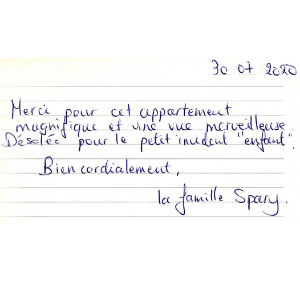 30 07 2020
Merci pour cet appartement
magnifique et une vue merveilleuse.
Désolée pour le petit incident "enfant".
Bien cordialement,
la famille Spary.